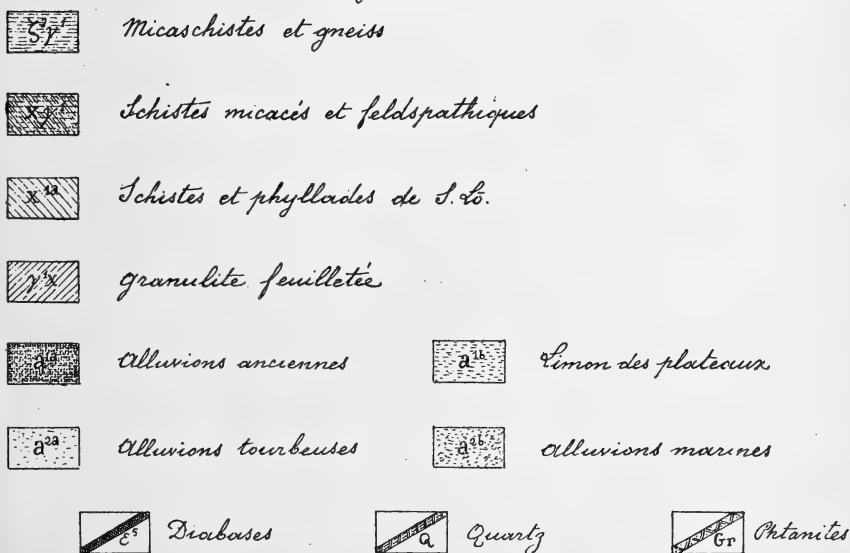 ζγ¹ Micaschistes et gneiss
xγ¹ Schistes micacés et feldspathiques
x¹ᵃ Schistes et phyllades de S. Lô.
γ¹x granulite feuilletée
a¹ᵃ Alluvions anciennes a¹ᵇ Limon des plateaux
a²ᵃ Alluvions tourbeuses a²ᵇ Alluvions marines
ε⁵ Diabases Q Quartz Gr Phtanites